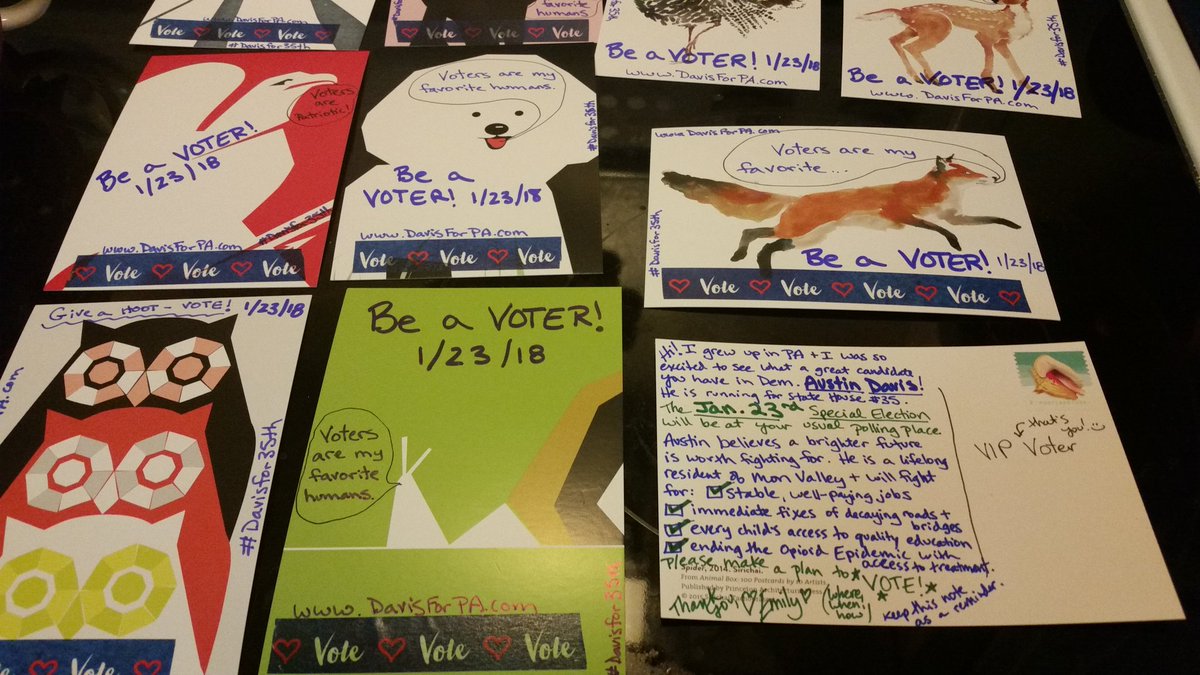 www.DavisForPA.com
Vote Vote Vote
#Davisfor35th
favorite
humans.
Vote Vote Vote
Be a VOTER! 1/23/18
www.DavisForPA.com
Be a VOTER! 1/23/18
www.DavisForPA.com
#Davisfor35th
Voters
are
Patriotic!
Be a VOTER!
1/23/18
#Davisfor35th
www.DavisForPA.com
Vote Vote Vote
Voters are my
favorite humans.
#Davisfor35th
Be a
VOTER! 1/23/18
www.DavisForPA.com
Vote Vote Vote
www.DavisForPA.com
Voters are my
favorite...
#Davisfor35th
Be a VOTER! 1/23/18
Vote Vote Vote Vote
Give a HOOT - VOTE! 1/23/18
PA.com
#Davisfor35th
Vote Vote
Be a VOTER!
1/23/18
Voters
are my
favorite
humans.
www.DavisForPA.com
#Davisfor35th
Vote Vote Vote
Hi! I grew up in PA + I was so
excited to see what a great candidate
you have in Dem. Austin Davis!
He is running for State House #35.
The Jan. 23rd Special Election
will be at your usual polling place.
Austin believes a brighter future
is worth fighting for. He is a lifelong
resident of Mon Valley + will fight
for: Stable, well-paying jobs
immediate fixes of decaying roads +
bridges
every child's access to quality education
ending the Opioid Epidemic with
access to treatment.
please make a plan to VOTE!
(where, when, how)
Spider, 2014. Sirichai.
From Animal Box: 100 Postcards by 10 Artists
Published by Princeton Architectural Press
© 2015
Thank you! Emily
keep this note
as a reminder.
that's
you!
VIP Voter